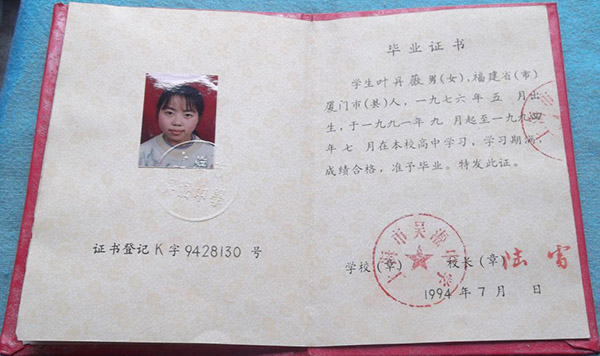 证书登记 K 字 9428130 号
毕业证书
学生叶丹薇男(女),福建省(市)
厦门市(县)人,一九七六年五 月出
生,于一九九一年九 月起至一九九四
年七 月在本校高中学习,学习期满,
成绩合格,准予毕业。特发此证。
学校(章) 校长(章)陆雷
1994年7月 日